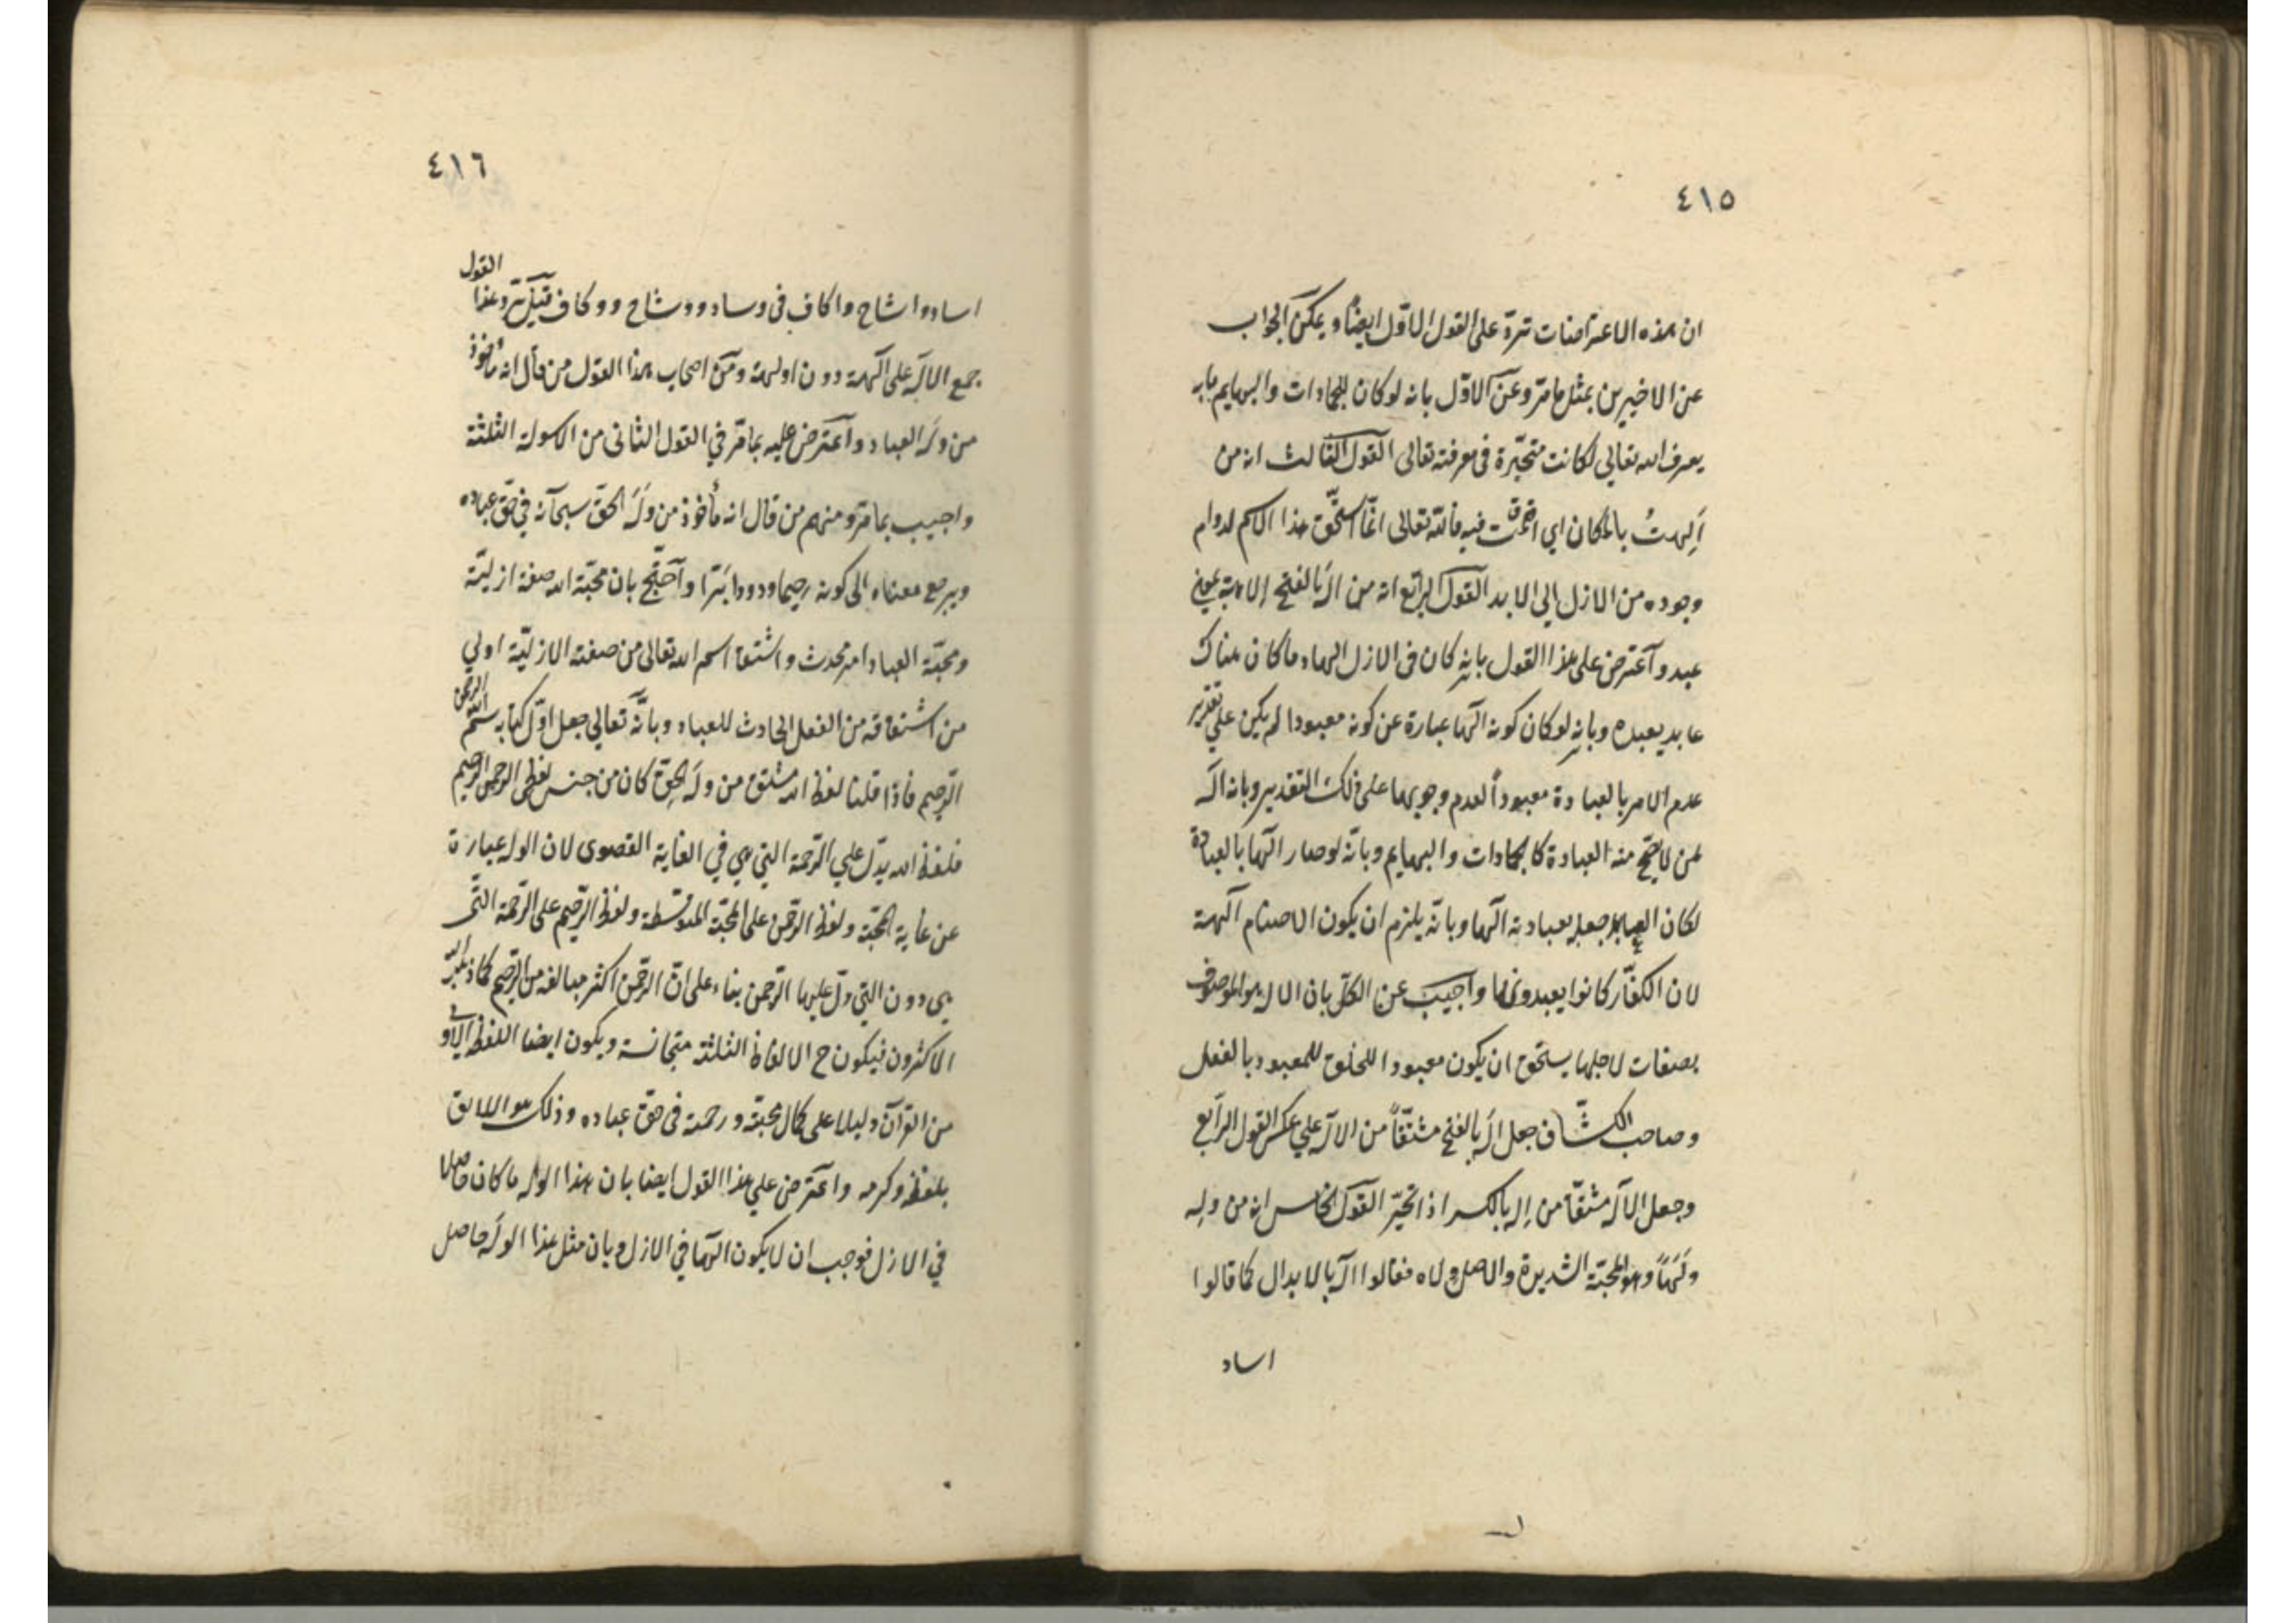 ٤١٥
ان هذه الاعتراضات ترد على القول الاول ايضا و يمكن الجواب
عن الاخيرين بمثل ما مر وعن الاول بانه لو كان للجمادات والبهايم ما به
يعرف الله تعالى لكانت متحيرة فى معرفته تعالى القول الثالث انه من
اَلِهتُ بالمكان اي اقمت فيه فالله تعالى انما استحق هذا الاسم لدوام
وجوده من الازل الي الابد القول الرابع انه من اله بالفتح الاهة بمعنى
عبد و اعترض على هذا القول بانه كان فى الازل الها وما كان هناك
عابد يعبده وبانه لو كان كونه الها عبارة عن كونه معبودا لم يكن علي تقدير
عدم الامر بالعبادة معبوداً لعدم وجوبها على ذلك التقدير وبانه اله
لمن لا يصح منه العبادة كالجمادات والبهايم وبانه لو صار الها بالعبادة
لكان العابد جعله بعبادته الها وبانه يلزم ان يكون الاصنام الهة
لان الكفّار كانوا يعبدونها واجيب عن الكل بان الاله هو الموصوف
بصفات لاجلها يستحق ان يكون معبودا للخلق للمعبود بالفعل
وصاحب الكشّاف جعل اله بالفتح مشتقّاً من الاله علي عكس القول الرابع
وجعل الاله مشتقّا من اله بالكسر اذا تحيّر القول الخامس انه من وله
ولَهاً وهو المحبّة الشديدة والاصل ولاه فقالوا اله بالابدال كما قالوا
اساد
٤١٦
اساد واشاح واكاف فى وساد ووشاح ووكاف قيل يرد هذا القول
جمع الاله على الهة دون اولهة ومن اصحاب هذا القول من قال انه مأخوذ
من وله العباد واعترض عليه بما مرّ في القول الثانى من الاسولة الثلثة
واجيب بما مرّ ومنهم من قال انه مأخوذ من وَلَه الحقّ سبحانه في حقّ عباده
ويرجع معناه الى كونه رحيما ودودا برّا واحتّج بان محبّة الله صفة ازليّة
ومحبّة العباد امر محدث واشتقاق اسم الله تعالى من صفته الازليّة اولي
من اشتقاقه من الفعل الحادث للعباد وبانّه تعالي جعل اوّل كتابه بسم الله الرحمن
الرّحيم فاذا قلنا لفظ الله مشتق من وله الحق كان من جنس لفظى الرحمن الرحيم
فلفظ الله يدّل علي الرّحمة التي هي في الغاية القصوى لان الوله عبارة
عن غاية المحبّة ولفظ الرّحمن على المحبّة المتوسّطة ولفظ الرّحيم على الرّحمة الّتى
هي دون التي دلّ عليها الرّحمن بناء على انّ الرحمن اكثر مبالغة من الرّحيم كما ذهب اليه
الاكثرون فيكون ح الالفاظ الثلثة متجانسة ويكون ايضا اللفظ الاول
من القرآن دليلا على كمال محبّته ورحمته فى حقّ عباده وذلك هو اللايق
بلطفه وكرمه واعترض علي هذا القول ايضا بان هذا الوله ما كان حاصلا
في الازل فوجب ان لا يكون الها في الازل وبان مثل هذا الوله حاصل